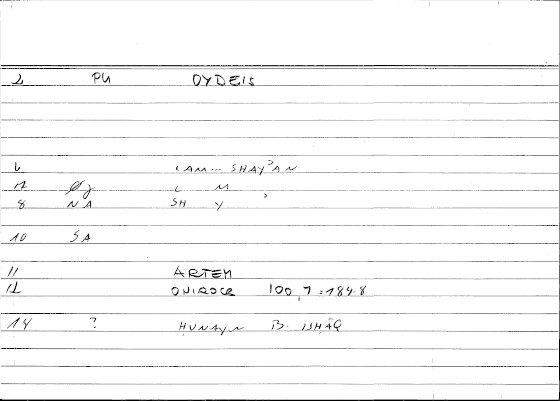 2 PU OYDEIS
6 LAM... SHAY'AN
12 L M
8 NA SH Y '
10 SA
11 ARTEM
12 ONIROCR 100,7 = 184.8
14 ? ḤUNAYN B. ISḤĀQ